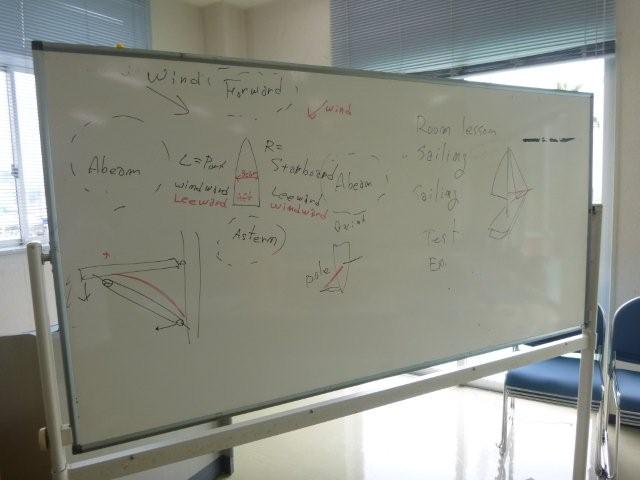 Wind
Forward
wind
Abeam
L = Port
windward
Leeward
R =
Starboard
Leeward
windward
Abeam
Astern
pole
Room lesson
Sailing
Sailing
Test